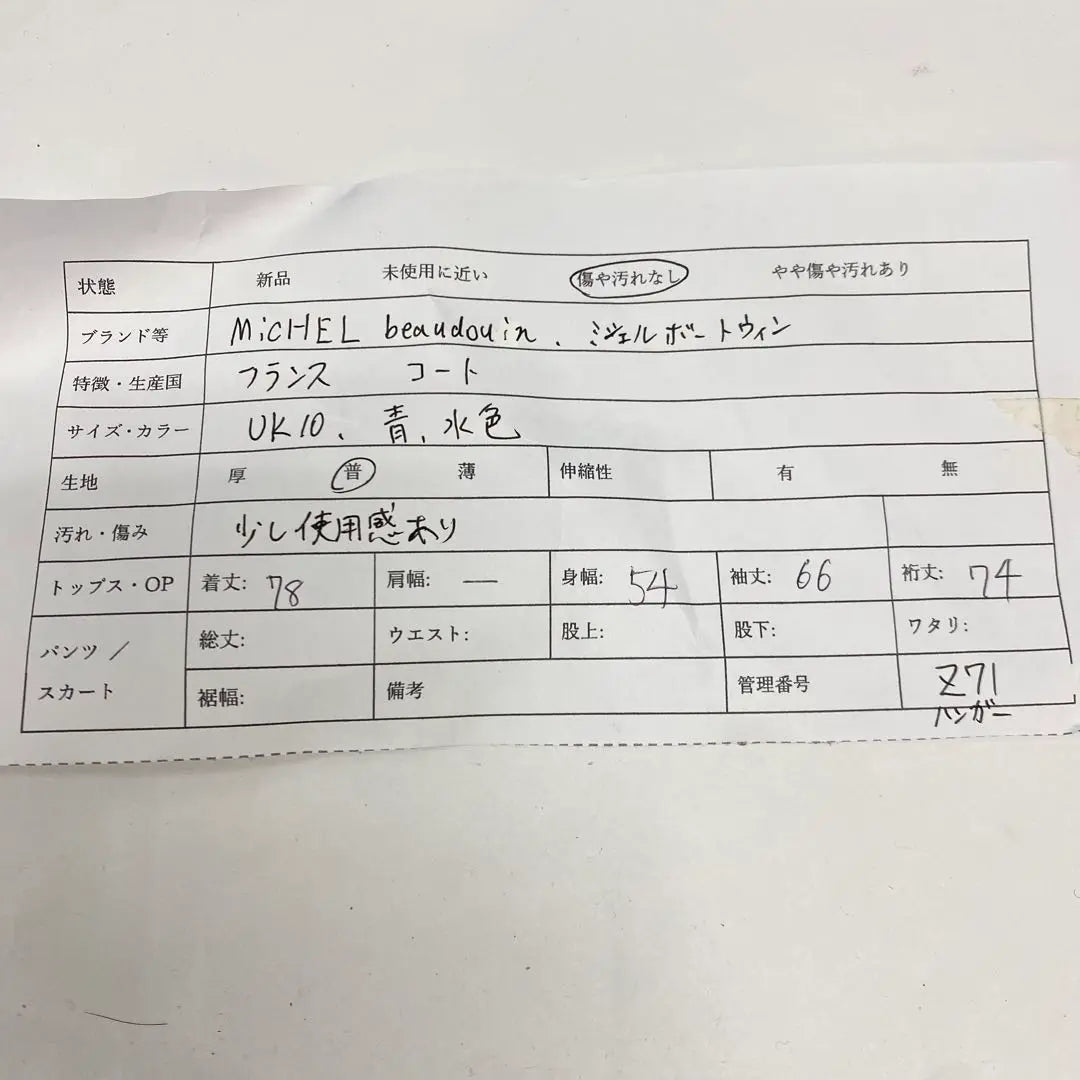 状態 新品 未使用に近い 傷や汚れなし やや傷や汚れあり
ブランド等 MiCHEL beaudouin、ミジェルボートウィン
特徴・生産国 フランス コート
サイズ・カラー UK10、青、水色
生地 厚 普 薄 伸縮性 有 無
汚れ・傷み 少し使用感あり
トップス・OP 着丈: 78 肩幅: — 身幅: 54 袖丈: 66 裄丈: 74
パンツ／ 総丈: ウエスト: 股上: 股下: ワタリ:
スカート 裾幅: 備考 管理番号 Z71
ハンガー